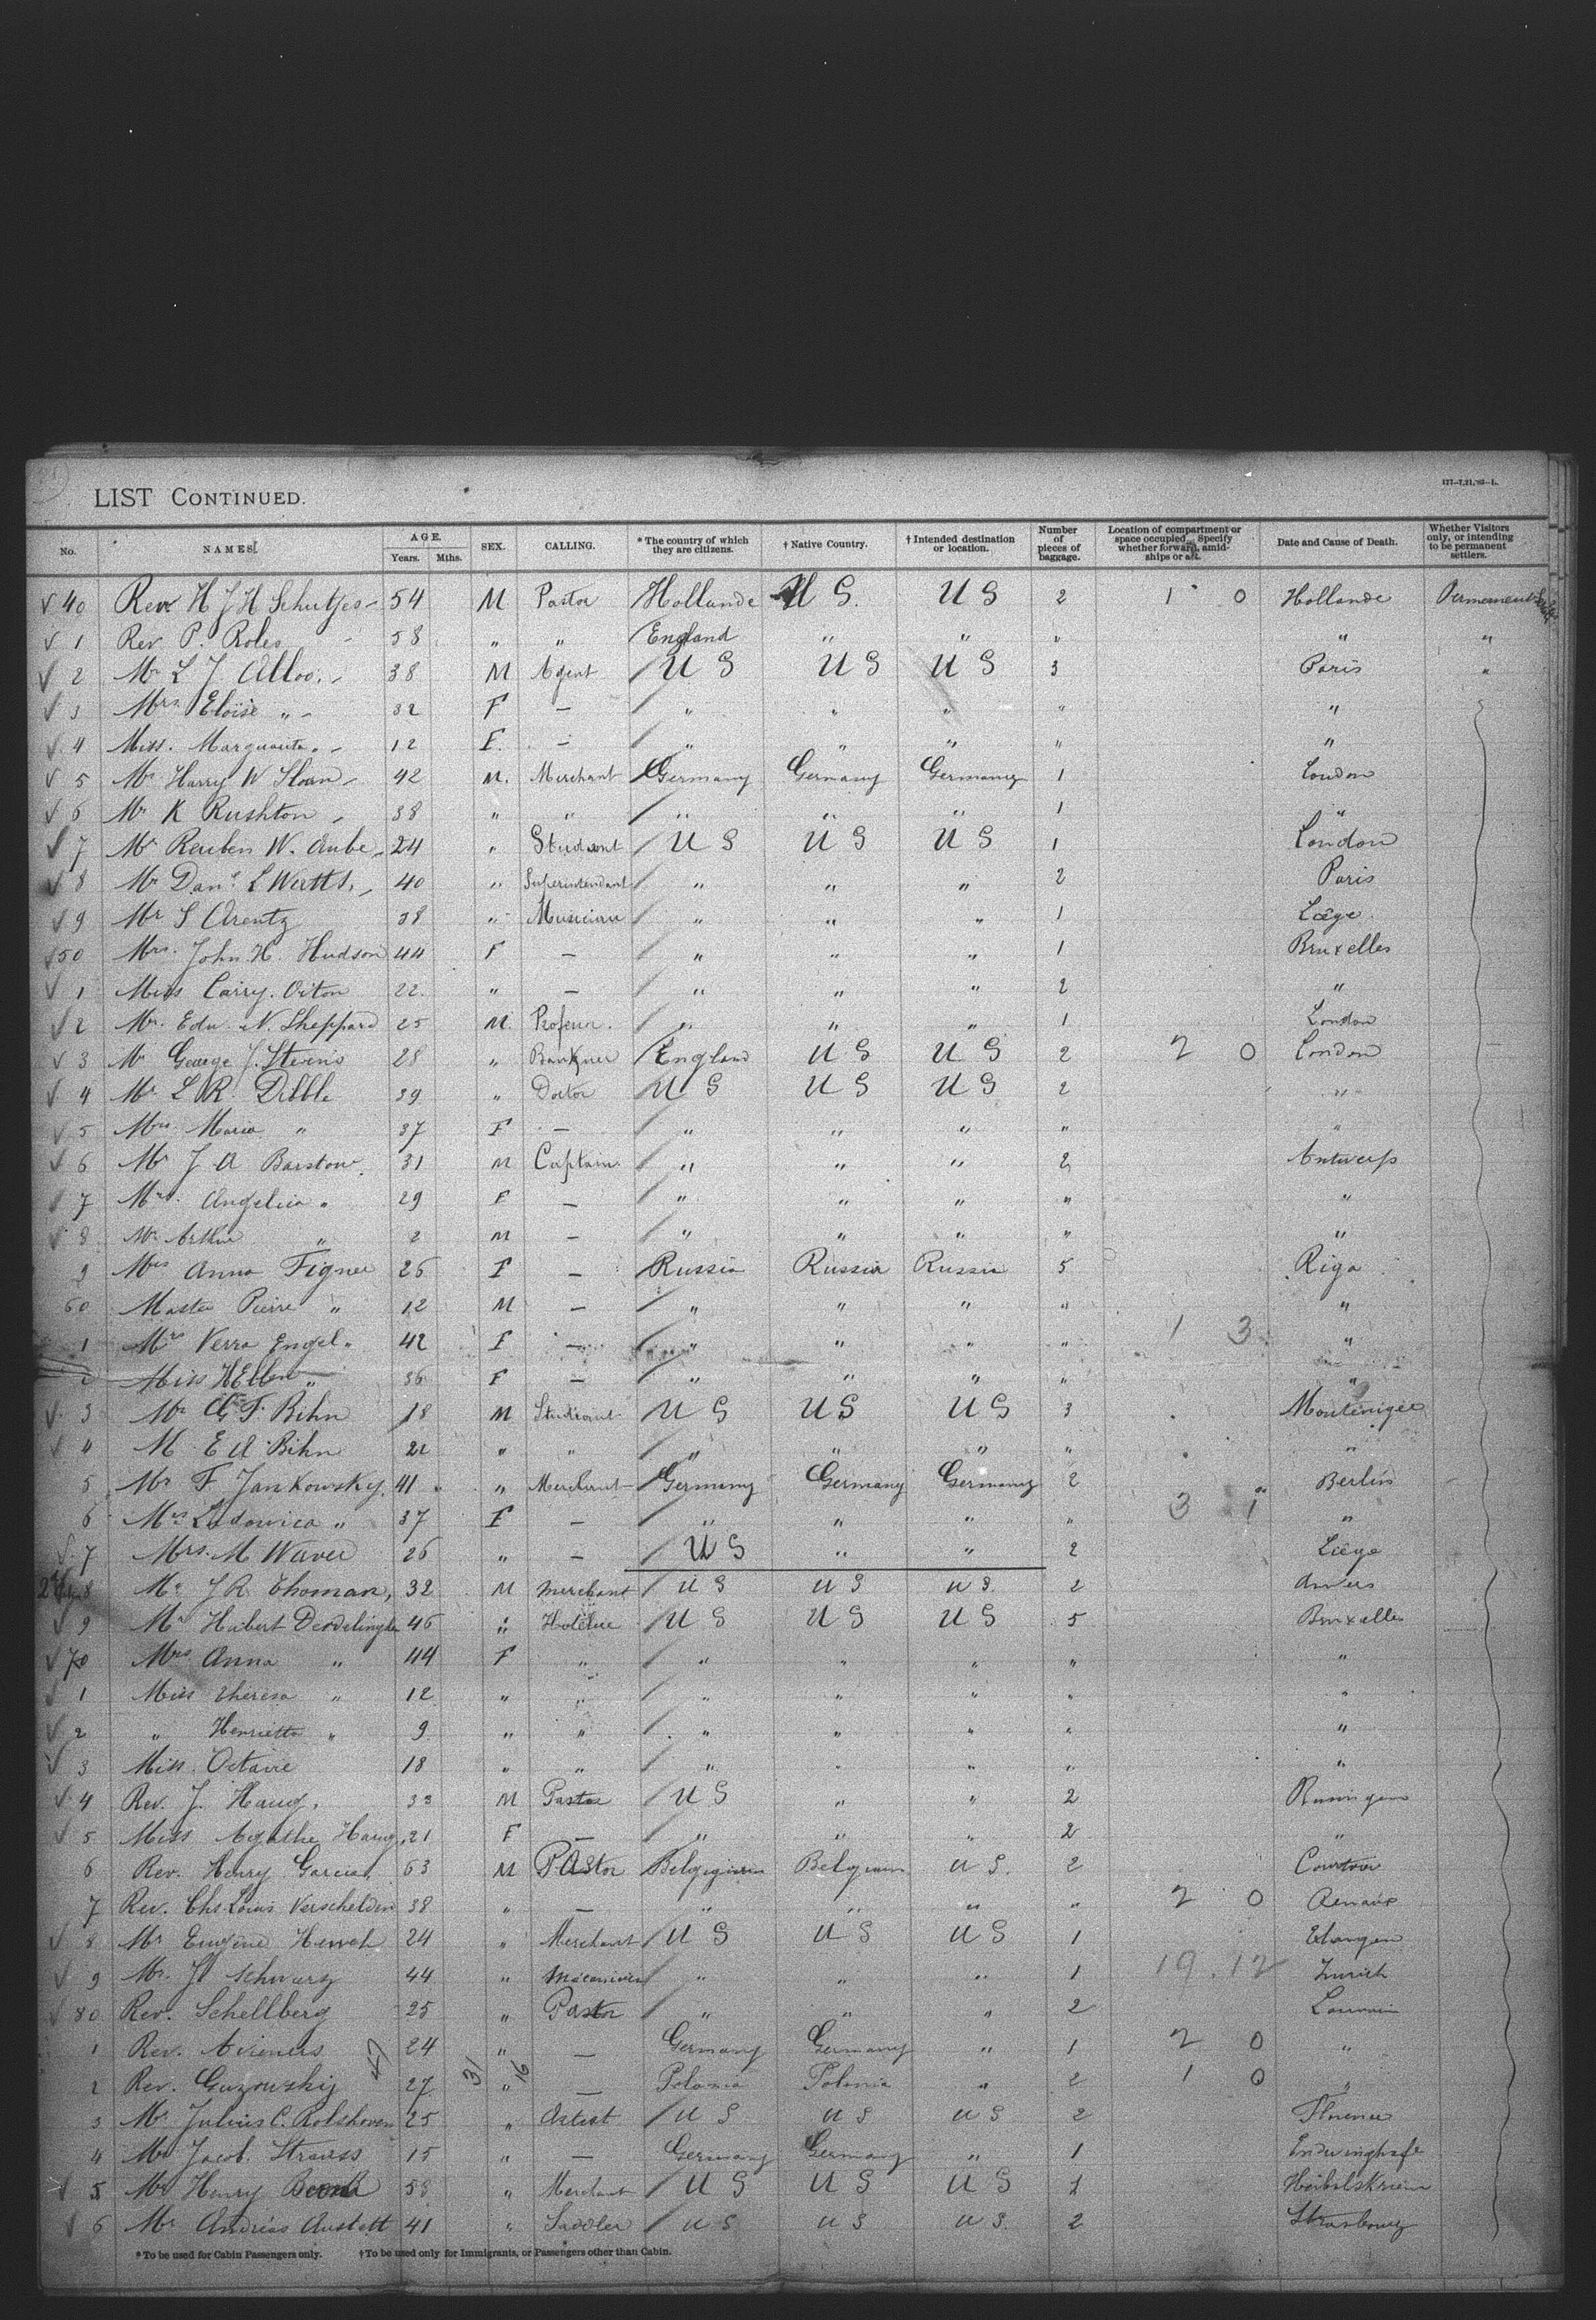 LIST CONTINUED.
177-7,21,'93-L.
No. NAMES. AGE. Years. Mths. SEX. CALLING. * The country of which they are citizens. † Native Country. † Intended destination or location. Number of pieces of baggage. Location of compartment or space occupied. Specify whether forward, amidships or aft. Date and Cause of Death. Whether Visitors only, or intending to be permanent settlers.
√ 40 Rev H J H Schutjes - 54 M Pastor Hollande U S. U S 2 1 0 Hollande
√ 1 Rev P. Roles - 58 " " England " " " " "
√ 2 Mr L J Alloo. - 38 M Agent / U S U S U S 3 Paris "
√ 3 Mrs Eloïse " - 32 F — / " " " " "
√ 4 Miss. Marguarita " - 12 F. — / " " " " "
√ 5 Mr Harry W Sloan - 42 M. Merchant Germany Germany Germany 1 London
√ 6 Mr K Rushton - 38 " " / " " " 1 "
√ 7 Mr Reuben W. Aube - 24 " Student / U S U S U S 1 London
√ 8 Mr Danl L Wertts, - 40 " Superintendant / " " " 2 Paris
√ 9 Mr S Arentz 38 " Musician / " " " 1 Liége
√ 50 Mrs. John H. Hudson 44 F — / " " " 1 Bruxelles
√ 1 Miss Carry. Oiton 22 " — / " " " 2 "
√ 2 Mr. Edw. N. Sheppard 25 M. / " " " 1 London
√ 3 Mr George J. Sterins 28 " England U S U S 2 2 0 London
√ 4 Mr L R. Dibble 39 " Doctor U S U S U S 2 "
√ 5 Mrs Maria " 37 F — / " " " " "
√ 6 Mr J A Barstow. 31 M Captain / " " " 2 Antwerp
√ 7 Mrs. Angelica " 29 F — / " " " " "
√ 8 Mr Arthur " 2 M — / " " " " "
9 Mrs Anna Figner 26 F — Russia Russia Russia 5 Riga
60 Master Pierre " 12 M — / " " " " "
1 Mrs Verra Engel " 42 F — / " " " " 1 3 "
2 Miss HEllen " 36 F — / " " " " "
√ 3 Mr G F. Bihn 18 M Student U S U S U S 3
√ 4 M E A Bihn 22 " " / " " " " "
5 Mr F Jankowsky. 41 " Merchant Germany Germany Germany 2 Berlin
6 Mrs Ludowica " 37 F — " " " " 3 1 "
√ 7 Mrs. M Waver 26 " — / U S " " 2 Liége
8 Mr J R Thoman, 32 M merchant / U S U S U S. 2 Anvers
√ 9 Mr Hubert Derdelinger 46 " / U S U S U S 5 Bruxelles
√ 70 Mrs Anna " 44 F " / " " " " "
√ 1 Miss Theresa " 12 " " / " " " " "
√ 2 " Henrietta " 9 " " / " " " " "
√ 3 Miss. Octavie 18 " " / " " " " "
√ 4 Rev. J. Haug. 33 M Pastor / U S " " 2
√ 5 Miss Agathe Haug. 21 F — / " " " 2 "
6 Rev. Henry Garcia 63 M Pastor Belgigium Belgium U S. 2
7 Rev. Chs Louis Verschelden 38 " — " " " " 2 0 Renaix
√ 8 Mr Eugène Hensch 24 " Merchant / U S U S U S 1
√ 9 Mr. J. Schwarz 44 " / " " " 1 19. 12 Zurich
√ 80 Rev. Schellberg 25 " Pastor / " " " 2 Louvain
1 Rev. Avieners 24 " — Germany Germany " 1 2 0 "
2 Rev. Guzowskij 47 27 31 " 16 — Polonia Polonia " 2 1 0 "
3 Mr. Julius C. Rolshoven 25 " Artist / U S U S U S 2 Florence
4 Mr Jacob. Strauss 15 " — Germany Germany " 1
√ 5 Mr Henry 58 " Merchant / U S U S U S 1
√ 6 Mr Andréas Austett 41 " Saddler / U S U S U S. 2 Strasbourg
* To be used for Cabin Passengers only. † To be used only for Immigrants, or Passengers other than Cabin.